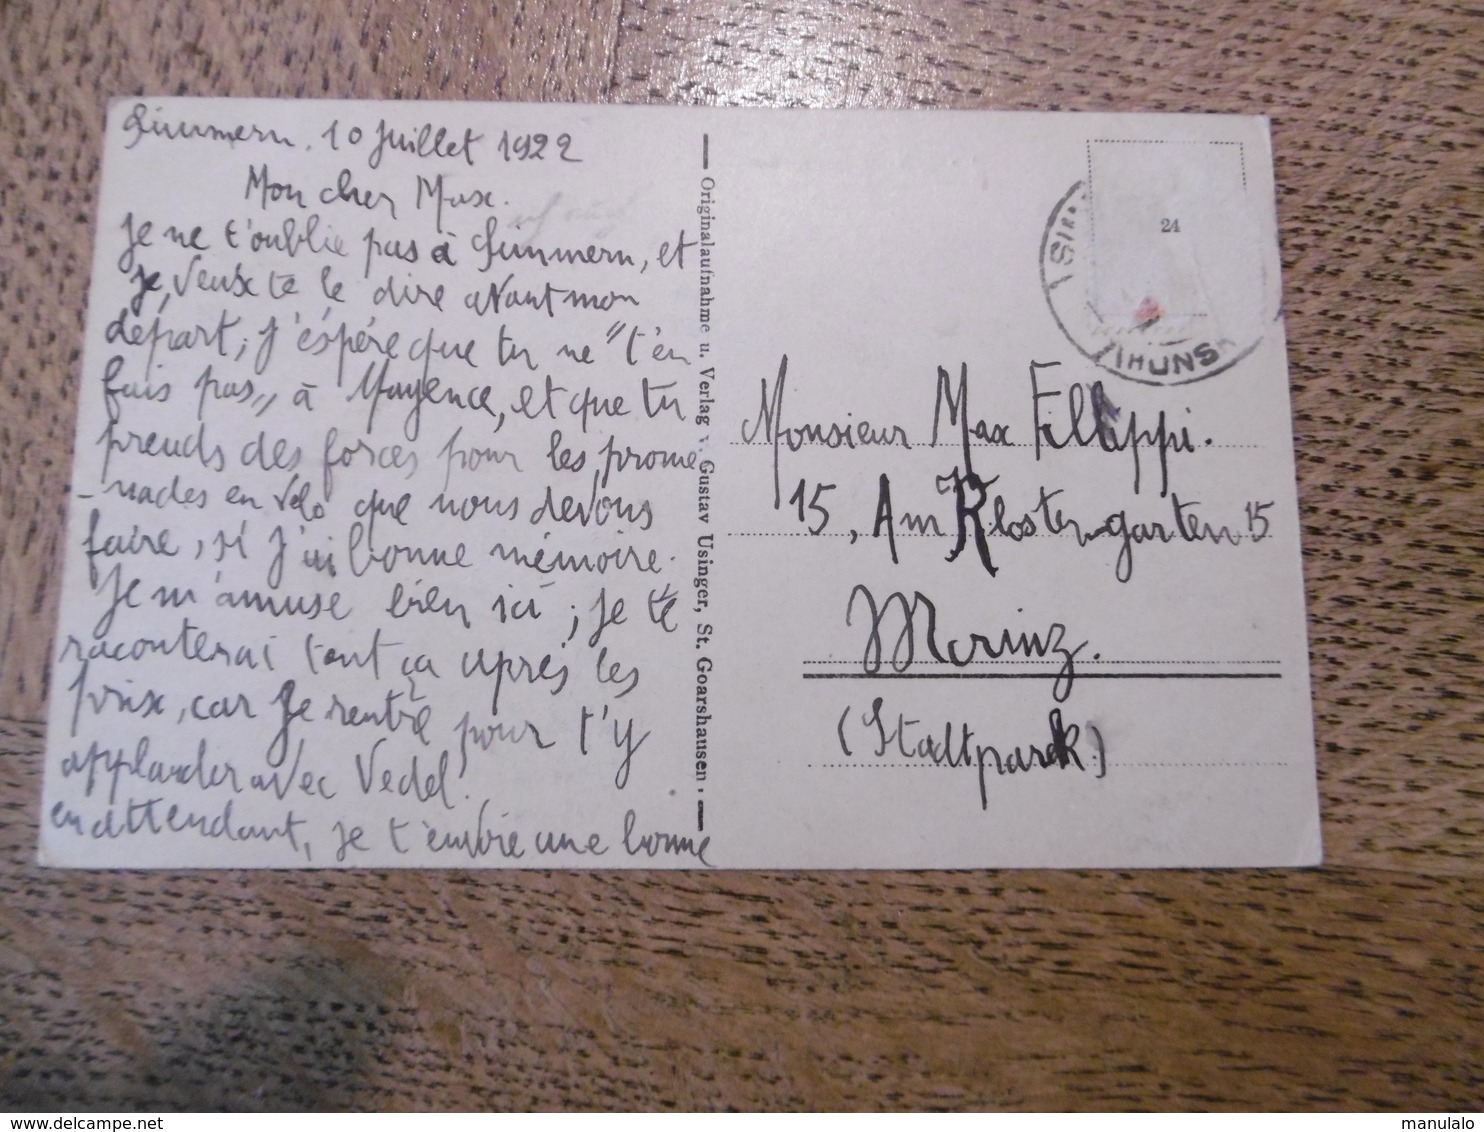 Simmern, 10 Juillet 1922
Mon cher Max.
Je ne t'oublie pas à Simmern, et
je veux te le dire avant mon
départ; j'espère que tu ne "t'en
fais pas" à Mayence, et que tu
prends des forces pour les prome
-nades en vélo que nous devons
faire, si j'ai bonne mémoire.
Je m'amuse bien ici; je te
raconterai tout ça après les
prix, car je rentre pour t'y
applauder avec Vedel.
en attendant, je t'envoie une bonne
Originalaufnahme u. Verlag v. Gustav Usinger, St. Goarshausen.
24
HUNS
Monsieur Max Fillippi.
15, Am Kloster-garten 15
Mainz.
(Stadtpark)
manulalo